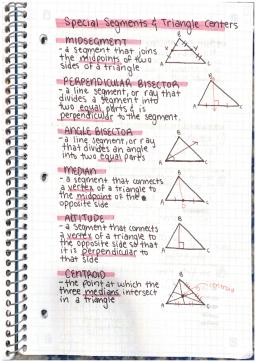 Special Segments & Triangle Centers
MIDSEGMENT
- a segment that joins
the midpoints of two
sides of a triangle
B
A
C
PERPENDICULAR BISECTOR
- a line, segment, or ray that
divides a segment into
two equal parts & is
perpendicular to the segment.
B
A
C
ANGLE BISECTOR
- a line, segment, or ray
that divides an angle
into two equal parts
B
A
C
MEDIAN
- a segment that connects
a vertex of a triangle to
the midpoint of the
opposite side
B
A
C
ALTITUDE
- a segment that connects
a vertex of a triangle to
the opposite side so that
it is perpendicular to
that side
B
A
C
CENTROID
- the point at which the
three medians intersect
in a triangle
B
centroid
A
C